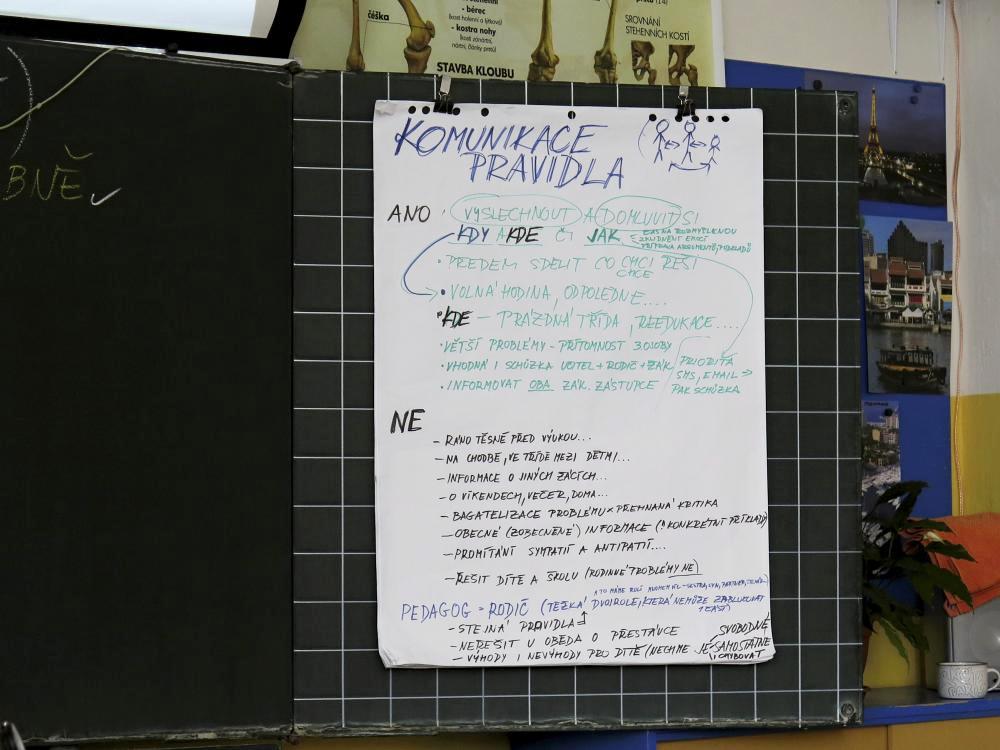 čéška
- bérec
(kost holenní a lýtková)
- kostra nohy
(kosti zánártní,
nártní, články prstů)
STAVBA KLOUBU
SROVNÁNÍ
STEHENNÍCH KOSTÍ
BNĚ
KOMUNIKACE
PRAVIDLA
ANO
VYSLECHNOUT A DOMLUVIT SI
KDY A KDE ČI JAK
ČAS NA ROZMYŠLENOU
ZKLIDNĚNÍ EMOCÍ
PŘÍPRAVA ARGUMENTŮ, PODKLADŮ
• PŘEDEM SDĚLIT CO CHCI ŘEŠI
CHCE
• VOLNÁ HODINA, ODPOLEDNE....
• KDE – PRÁZDNÁ TŘÍDA, REEDUKACE....
• VĚTŠÍ PROBLÉMY – PŘÍTOMNOST 3.OSOBY
• VHODNÁ I SCHŮZKA UČITEL + RODIČ + ŽÁK
• INFORMOVAT OBA ZÁK. ZÁSTUPCE
PRIORITA
SMS, EMAIL →
PAK SCHŮZKA
NE
– RÁNO TĚSNĚ PŘED VÝUKOU...
– NA CHODBĚ, VE TŘÍDĚ MEZI DĚTMI...
– INFORMACE O JINÝCH ŽÁCÍCH...
– O VÍKENDECH, VEČER, DOMA...
– BAGATELIZACE PROBLÉMU × PŘEHNANÁ KRITIKA
– OBECNÉ (ZOBECNĚNÉ) INFORMACE (! KONKRÉTNÍ PŘÍKLADY)
– PROMÍTÁNÍ SYMPATIÍ A ANTIPATIÍ....
– ŘEŠIT DÍTĚ A ŠKOLU (RODINNÉ PROBLÉMY NE)
PEDAGOG = RODIČ (TĚŽKÁ DVOJROLE, KTERÁ NEMŮŽE ZABLOKOVAT
1 ČÁST)
– STEJNÁ PRAVIDLA
– NEŘEŠIT U OBĚDA O PŘESTÁVCE
– VÝHODY I NEVÝHODY PRO DÍTĚ (NECHME JE SVOBODNĚ
SAMOSTATNĚ
I CHYBOVAT